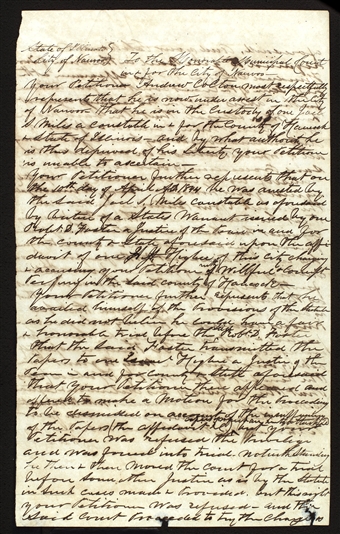 State of Illinois
City of Nauvoo To the Honorable Municipal Court
in & for the City of Nauvoo
Your Petitioner Andrew Colton most respectfully
represents that he is now under arrest in the City
of Nauvoo that he is in the Custody of one Joel
S Miles a constable in & for the County of Hancock
& State of Illinois and by what authority he
is thus deprived of his liberty your petitioner
is unable to ascertain
Your Petitioner further represents that on
the day of April AD 1844 he was arrested by
the said Joel S Miles constable as aforesaid
by virtue of a States Warrant issued by one
Robt D Foster a Justice of the in and for
the county & State aforesaid upon the affi
davit of one Higbee of this city charging
& accusing your Petitioner of Willful & Corrupt
Perjury in the said county of Hancock
Your Petitioner further represents that he
availed himself by the provisions of the Statute
as he did not
to be tried by Robt D Foster
that the said Foster transmitted the
Papers to one Isaac Higbee a Justice of the
in and for State aforesaid
that your Petitioner then appeared and
to make a Motion for the proceedings
to be on account of the insufficiency
of the Papers the affidavit
Petitioner was refused the Privilege
and was forced into trial notwithstanding
he then & there moved the court for a trial
before some other Justice as is by the Statute
in such cases made & provided but this right
your Petitioner was refused and the
said Court proceeded to try the Charge